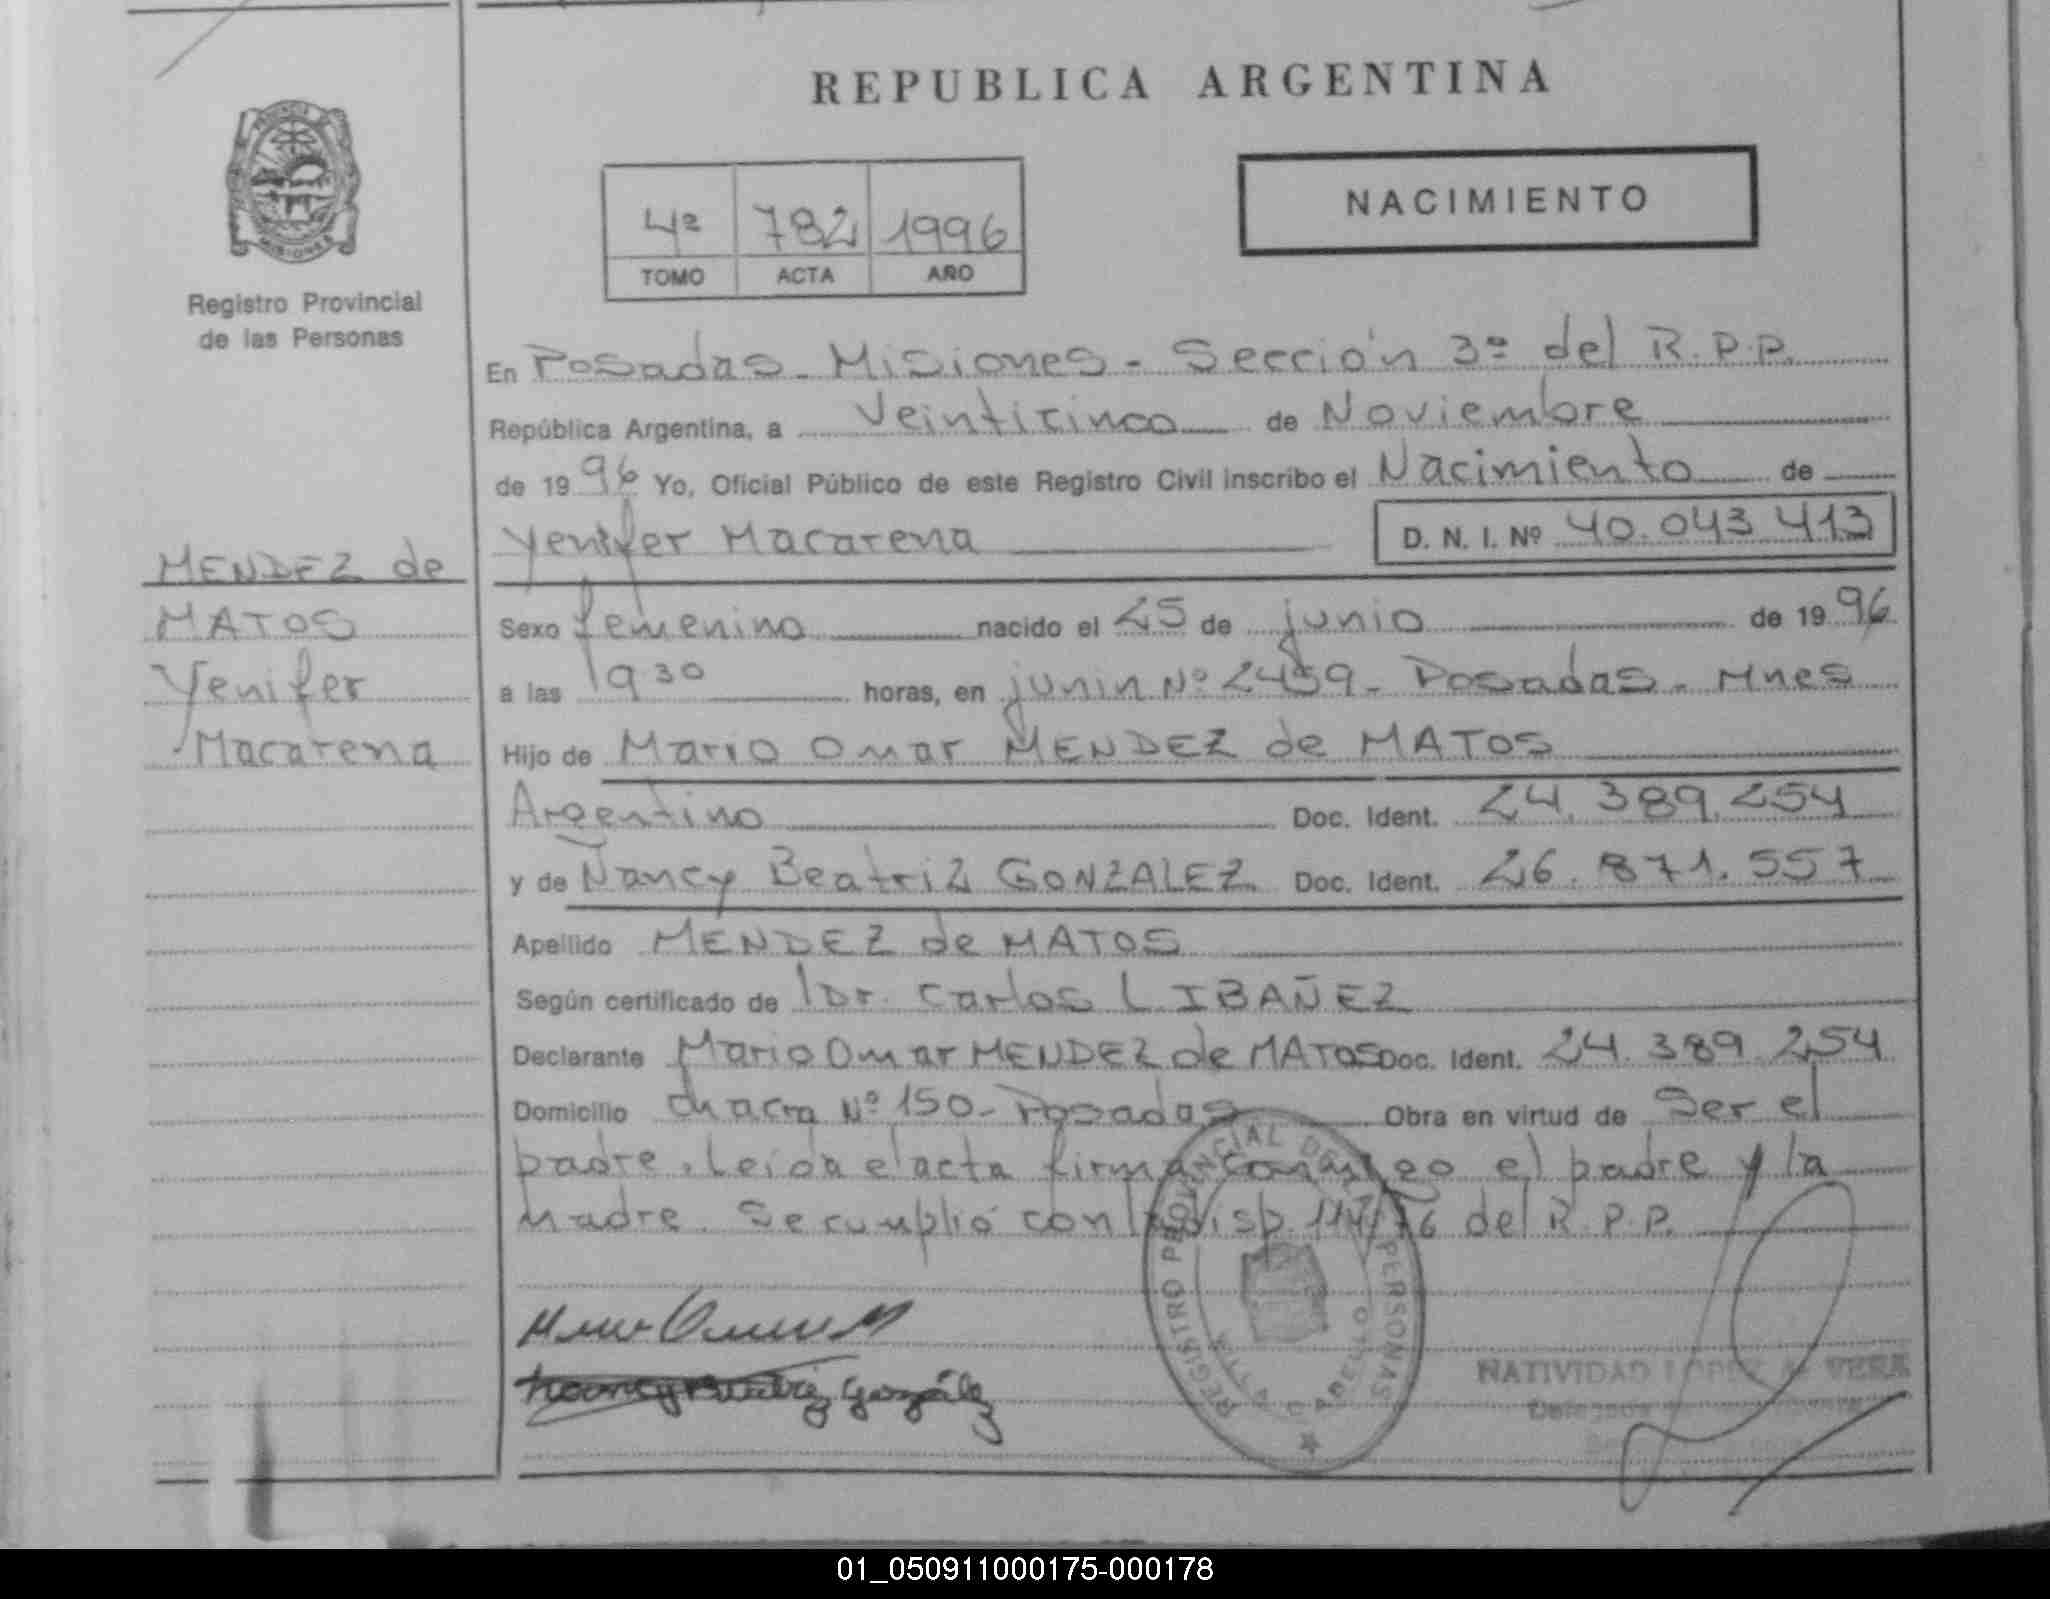 REPUBLICA ARGENTINA
NACIMIENTO
4º 782 1996
TOMO ACTA AÑO
PROVINCIA DE MISIONES
Registro Provincial
de las Personas
MENDEZ de
MATOS
Yenifer
Macarena
En Posadas - Misiones - Sección 3º del R.P.P.
República Argentina, a Veinticinco de Noviembre
de 1996 Yo, Oficial Público de este Registro Civil inscribo el Nacimiento de
Yenifer Macarena D. N. I. Nº 40.043.413
Sexo femenino nacido el 25 de junio de 1996
a las 19 30 horas, en junin Nº 2459 - Posadas - Mnes
Hijo de Mario Omar MENDEZ de MATOS
Argentino Doc. Ident. 24.389.254
y de Nancy Beatriz GONZALEZ Doc. Ident. 26.871.557
Apellido MENDEZ de MATOS
Según certificado de Dr. Carlos L IBAÑEZ
Declarante Mario Omar MENDEZ de MATOS Doc. Ident. 24.389.254
Domicilio chacra Nº 150 - Posadas Obra en virtud de Ser el
padre. Leida el acta firma conmigo el padre y la
madre. Se cumplió con la Disp. 114/76 del R.P.P.
REGISTRO PROVINCIAL DE LAS PERSONAS
Nancy Beatriz González
NATIVIDAD LOPEZ VERA
01_050911000175-000178